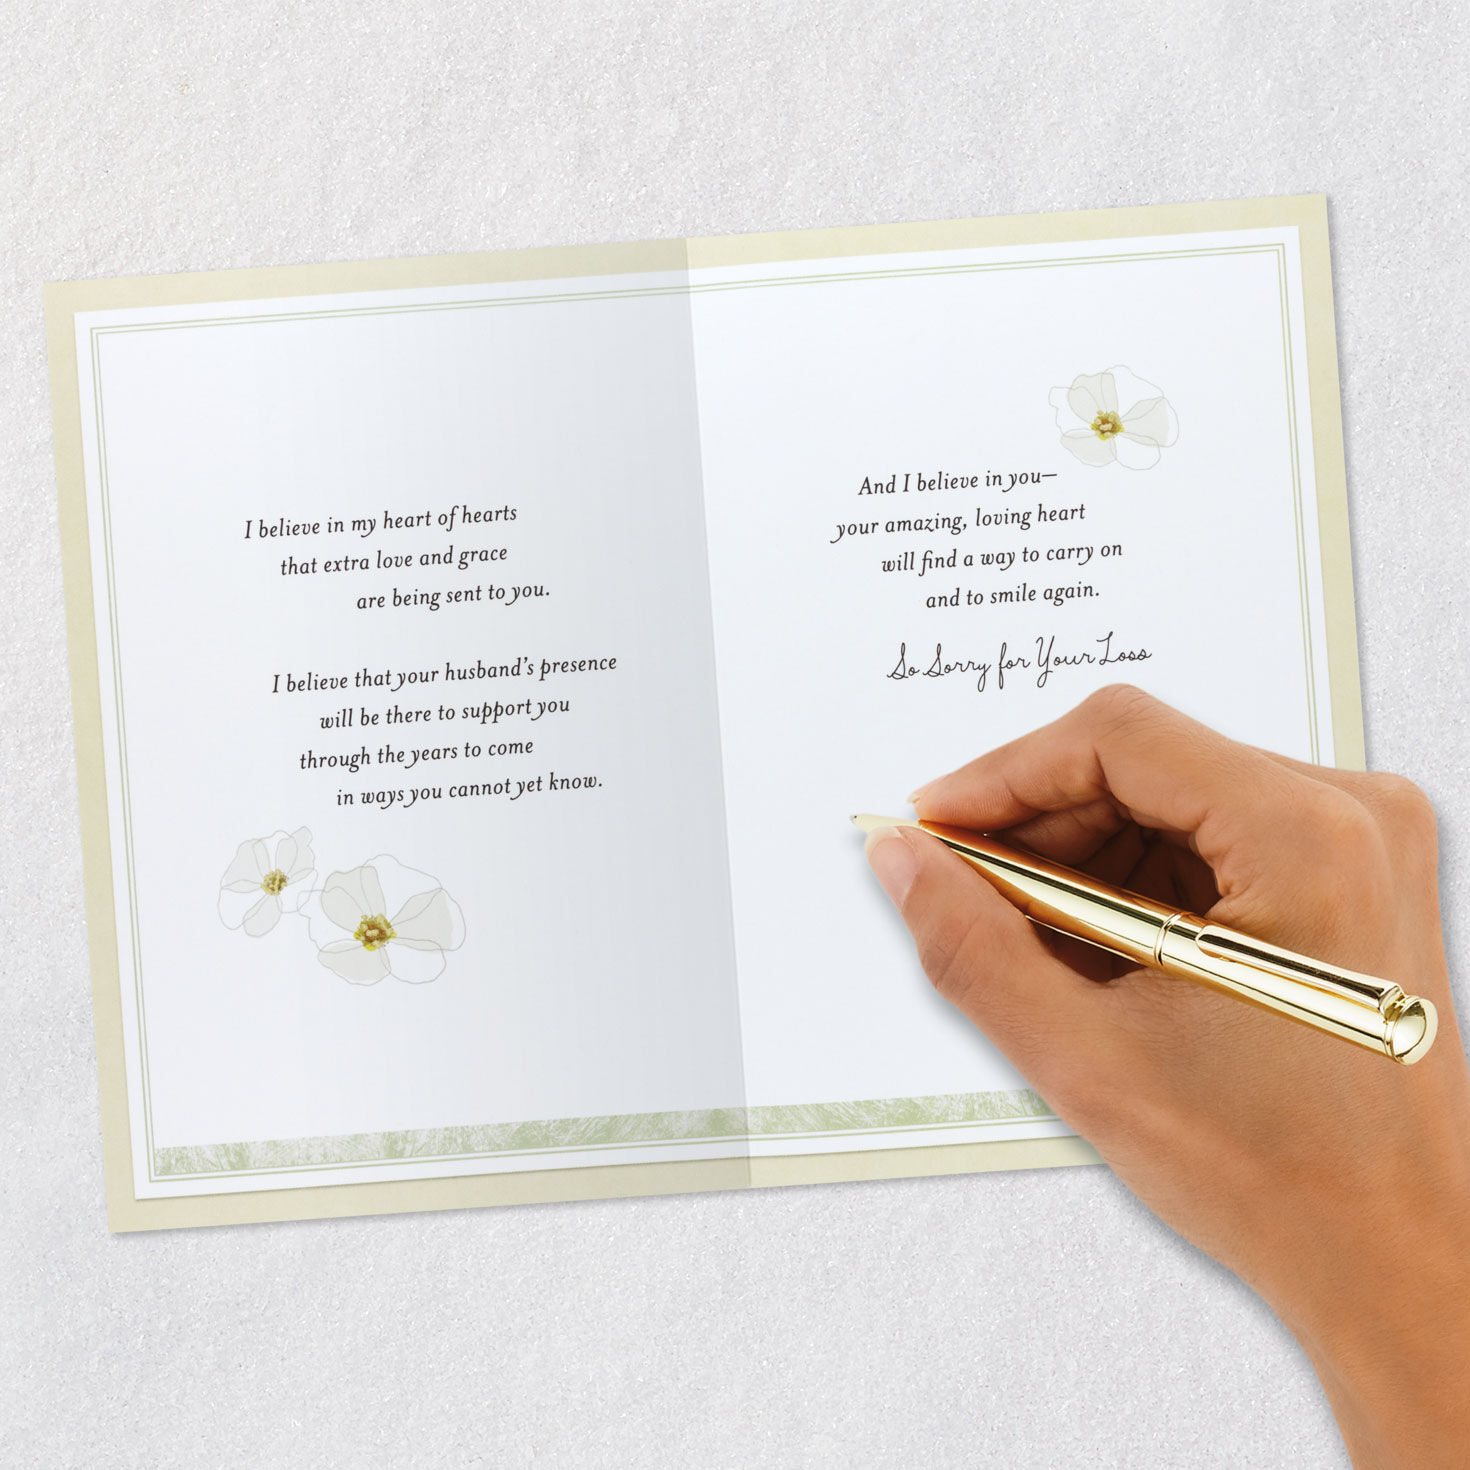 I believe in my heart of hearts
that extra love and grace
are being sent to you.
I believe that your husband's presence
will be there to support you
through the years to come
in ways you cannot yet know.
And I believe in you—
your amazing, loving heart
will find a way to carry on
and to smile again.
So Sorry for Your Loss